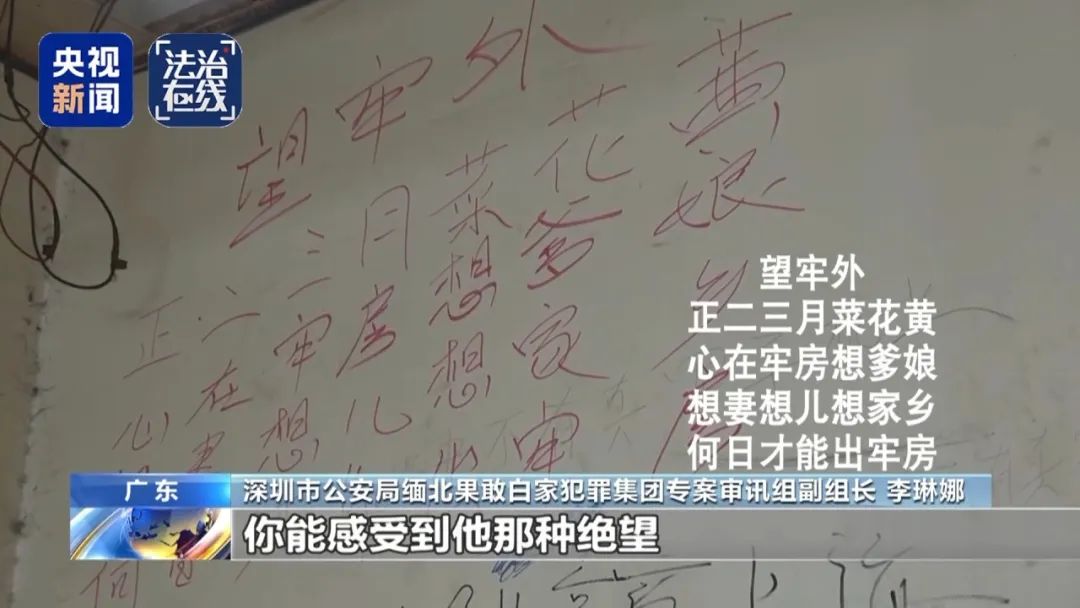 央视
新闻
法治
在线
望牢外
正二三月菜花黄
心在牢房想爹娘
妻想儿想家乡
何
望牢外
正二三月菜花黄
心在牢房想爹娘
想妻想儿想家乡
何日才能出牢房
广东
深圳市公安局缅北果敢白家犯罪集团专案审讯组副组长 李琳娜
你能感受到他那种绝望